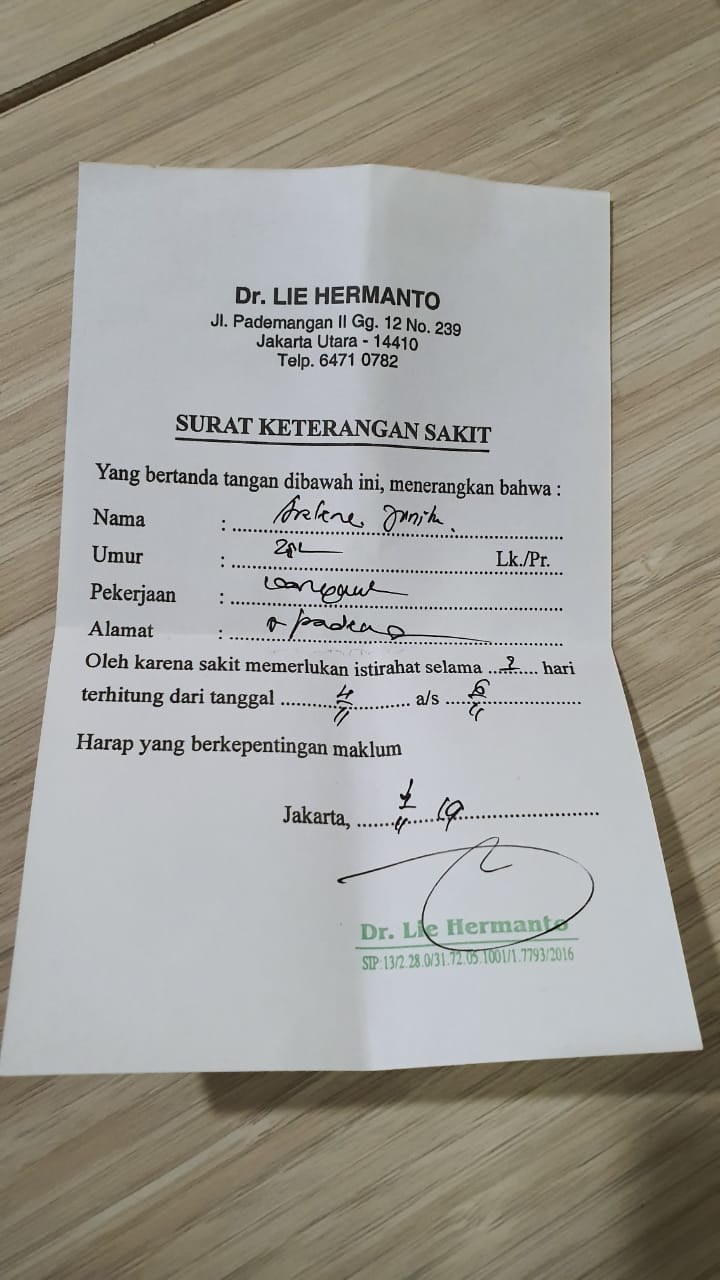 Dr. LIE HERMANTO
Jl. Pademangan II Gg. 12 No. 239
Jakarta Utara - 14410
Telp. 6471 0782
SURAT KETERANGAN SAKIT
Yang bertanda tangan dibawah ini, menerangkan bahwa :
Nama :
Umur : Lk./Pr.
Pekerjaan :
Alamat :
Oleh karena sakit memerlukan istirahat selama ........ hari
terhitung dari tanggal 4/11 a/s 6/11
Harap yang berkepentingan maklum
Jakarta, 19
Dr. Lie Hermanto
SIP:13/2.28.0/31.72.05.1001/1.7793/2016